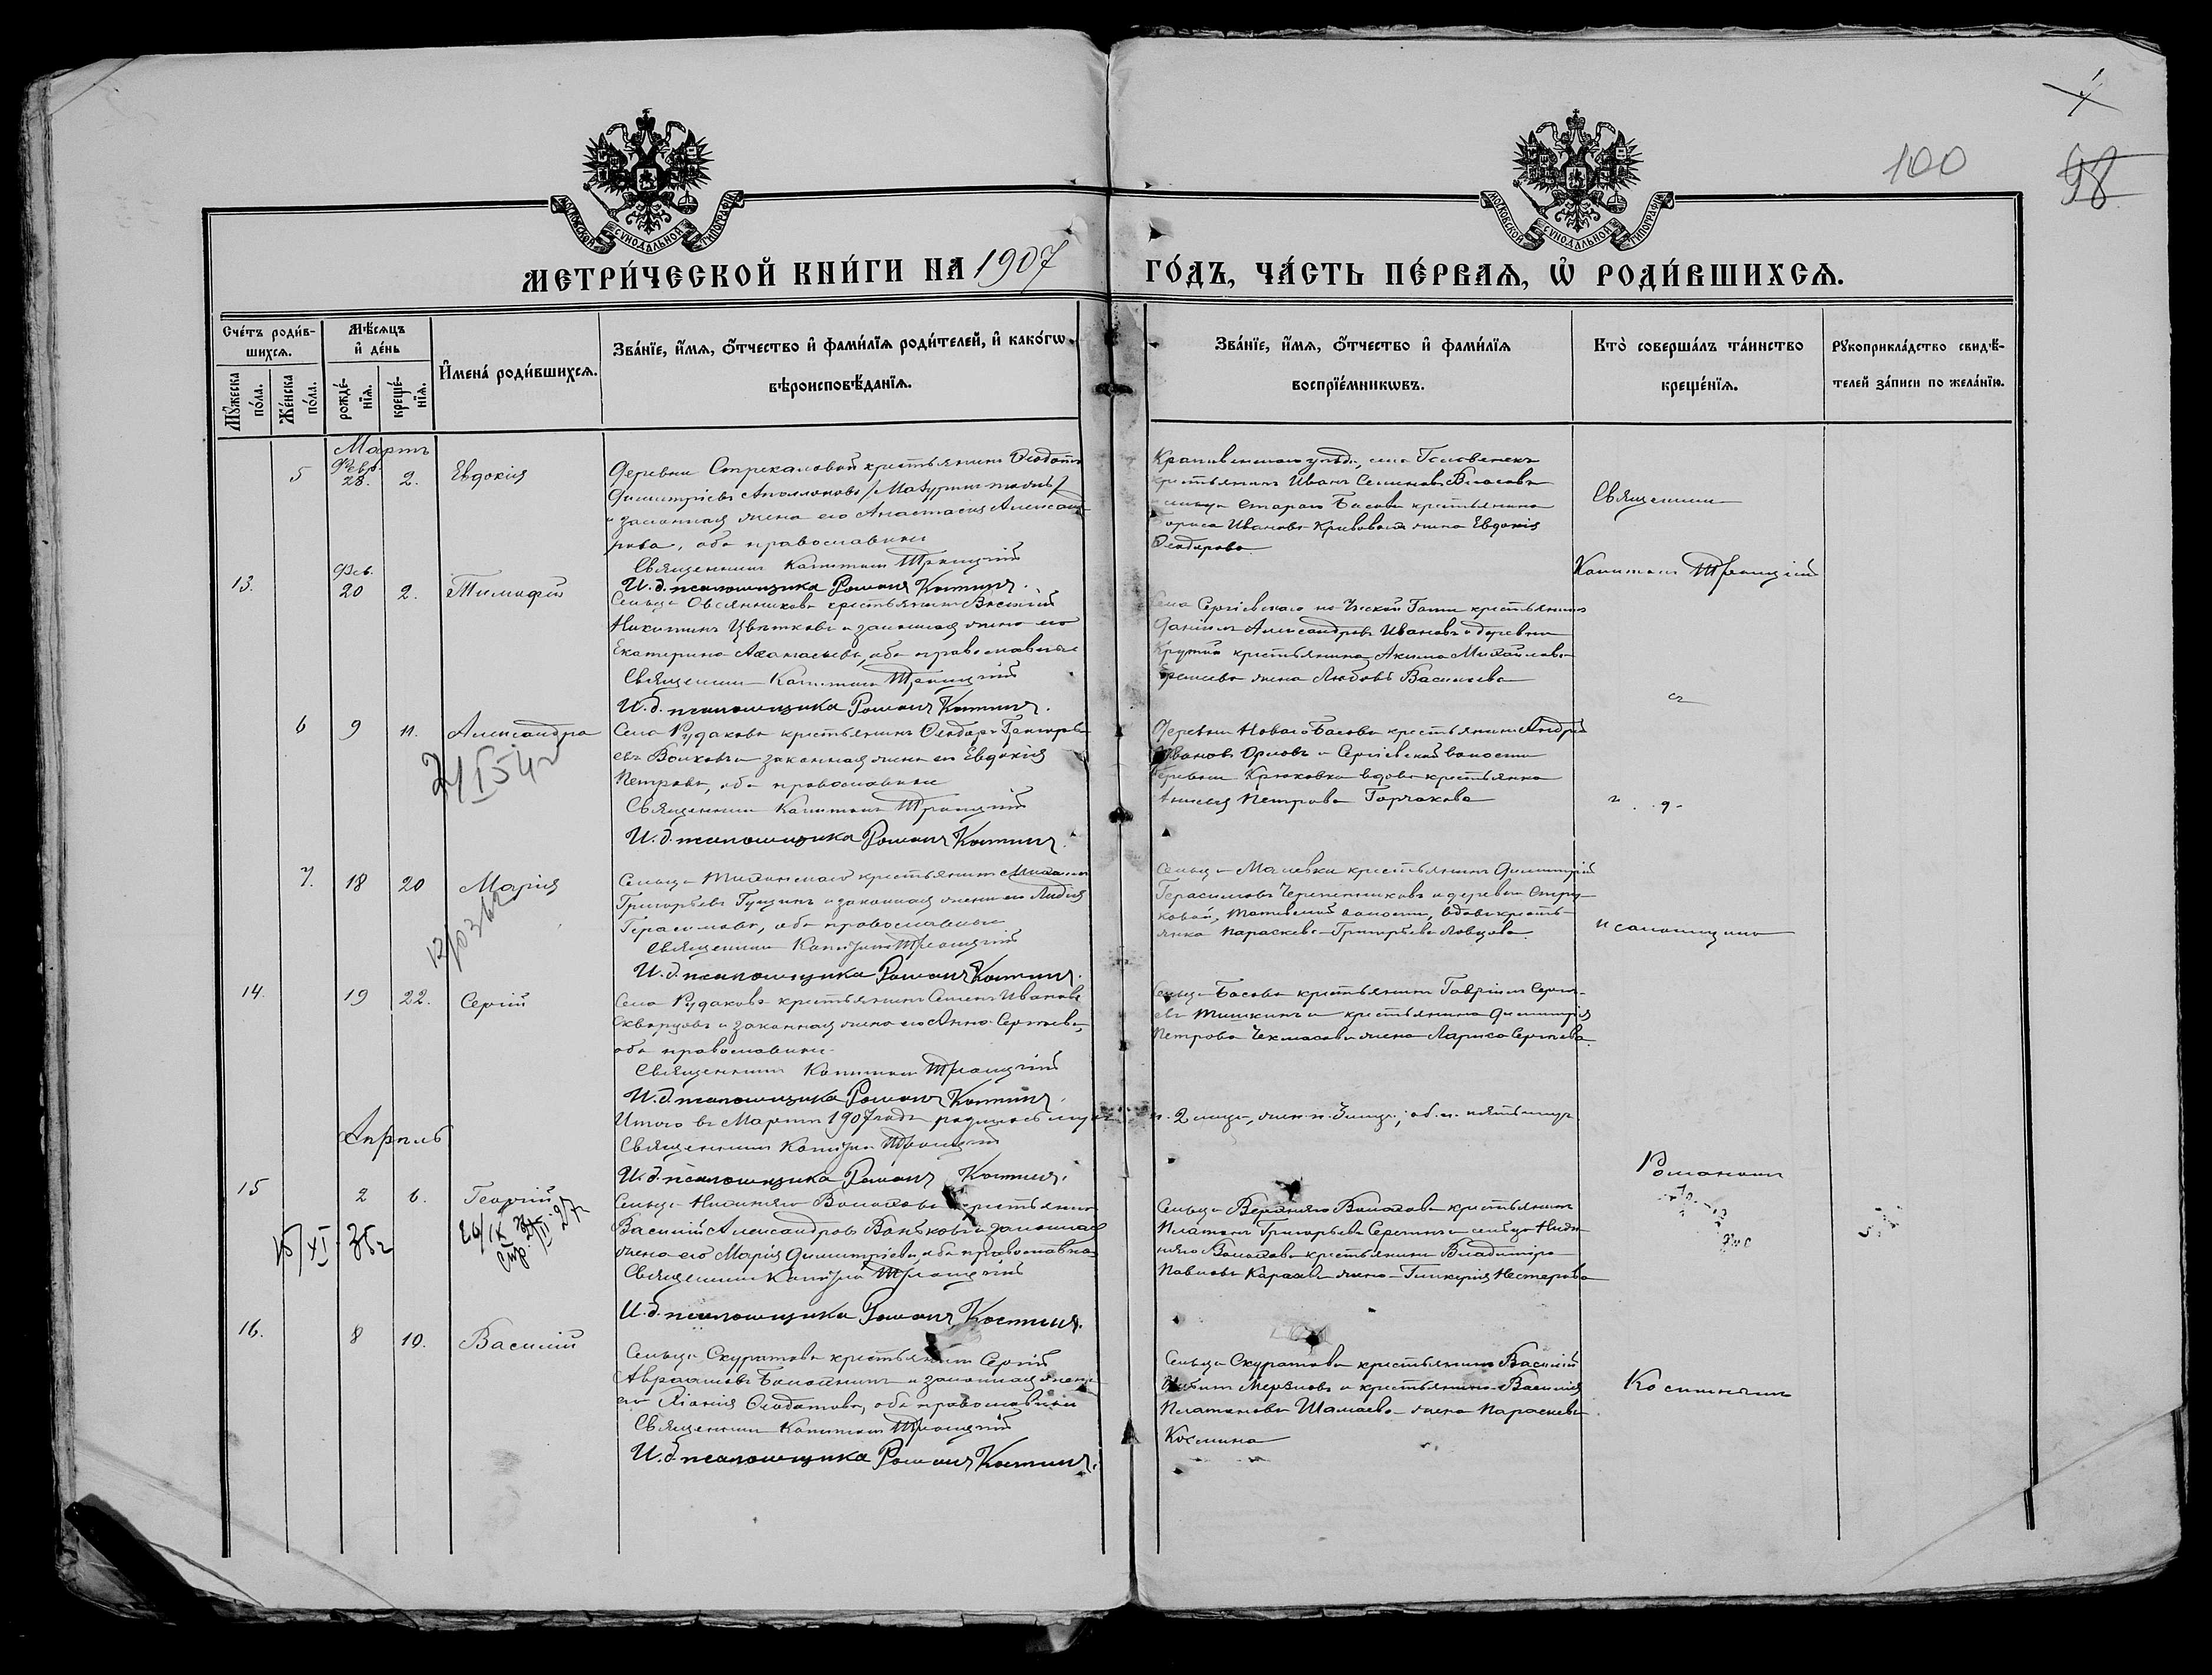 1
98
100
МОСКОВСКОЙ СУНОДАЛЬНОЙ ТИПОГРАФІИ
МОСКОВСКОЙ СУНОДАЛЬНОЙ ТИПОГРАФІИ
МЕТРИ́ЧЕСКОЙ КНИ́ГИ НА 1907 ГО́ДЪ, ЧА́СТЬ ПЕ́РВАѦ, Ѽ РОДИ́ВШИХСѦ.
Сче́тъ роди́в-
шихсѧ.
Мѣ́сѧцъ
и҆ де́нь
И҆мена́ роди́вшихсѧ.
Зва́нїе, и҆́мѧ, ѻ҆́тчество и҆ фами́лїѧ роди́телей, и҆ како́гѡ
вѣроисповѣ́данїѧ.
Зва́нїе, и҆́мѧ, ѻ҆́тчество и҆ фами́лїѧ
воспрїе́мникѡвъ.
Кто̀ соверша́лъ та́инство
креще́нїѧ.
Рꙋкоприкла́дство свидѣ́-
телей за́писи по жела́нїю.
Мꙋ́жеска
по́ла.
Же́нска
по́ла.
рожде́-
нїѧ.
креще́-
нїѧ.
Мартъ
5 Февр. 28. 2. Евдокія
Деревни Стрекаловой крестьянинъ Ѳеодотъ
Димитріевъ Аполлоновъ
и законная жена его Анастасія Александ
рова, оба православные
Священникъ Капитонъ Троицкій
И. д. псаломщика Романъ Костинъ.
Крапивенскаго уѣзда, села
крестьянинъ Иванъ Семеновъ Власовъ
сельца Стараго Басова крестьянина
Бориса Иванова Кривова жена Евдокія
Ѳеодорова
Священникъ
Капитонъ Троицкій
13. Фев. 20 2. Тимофей
Сельца Овсянникова крестьянинъ Василій
Никитинъ Цвѣтковъ и законная жена его
Екатерина Аѳанасьева, оба православные
Священникъ Капитонъ Троицкій
И. д. псаломщика Романъ Костинъ.
Села Сергіевскаго крестьянинъ
Даніилъ Александровъ Ивановъ и деревни
Крутой крестьянина Акима Михайлова
жена Любовь Васильева
съ
6 9 11. Александра
2/I 54 г
Села Рудакова крестьянинъ Ѳеодоръ Григорь
евъ Волковъ и законная жена его Евдокія
Петрова, оба православные
Священникъ Капитонъ Троицкій
И. д. псаломщика Романъ Костинъ.
Деревни Новаго Басова крестьянинъ Андрей
Ивановъ Орловъ и Сергіевской волости
деревни Крюковки вдова крестьянка
Петрова Горчакова
и. д.
7. 18 20 Марія
Сельца крестьянинъ Михаилъ
Григорьевъ Гущинъ и законная жена его Лидія
Герасимова, оба православные
Священникъ Капитонъ Троицкій
И. д. псаломщика Романъ Костинъ.
Сельца Малевки крестьянинъ Димитрій
Герасимовъ Черепенниковъ и деревни Стру-
ковой, волости, вдова кресть-
янка Параскева Григорьева Ловцова.
псаломщика
14. 19 22. Сергій
Села Рудакова крестьянинъ Семенъ Ивановъ
Скворцовъ и законная жена его Анна Сергѣева,
оба православные.
Священникъ Капитонъ Троицкій
И. д. псаломщика Романъ Костинъ.
Сельца Басова крестьянинъ Гавріилъ Сергѣ-
евъ Тишкинъ и крестьянина Димитрія
Петрова Чекмасова жена Лариса Сергѣева.
Итого въ Мартѣ 1907 года родилось муж. п. 2 младе, жен. п. 3 младе; об. п. пять младе.
Священникъ Капитонъ Троицкій
И. д. псаломщика Романъ Костинъ.
Апрѣль
15 2 6. Георгій
15/XI 35 г
Сельца Нижняго Волохова крестьянинъ
Василій Александровъ Ваньковъ и законная
жена его Марія Димитріева, оба православные
Священникъ Капитонъ Троицкій
И. д. псаломщика Романъ Костинъ.
Сельца Верхняго Волохова крестьянинъ
Платонъ Григорьевъ Серегинъ и сельца Ниж-
няго Волохова крестьянина Владиміра
Павлова Карасева жена Гликерія Нестерова
Романомъ
16. 8 10. Василій
Сельца Скуратова крестьянинъ Сергій
Авраамовъ и законная жена
его Ѳеодотова, оба православные
Священникъ Капитонъ Троицкій
И. д. псаломщика Романъ Костинъ.
Сельца Скуратова крестьянинъ Василій
и крестьянина Василія
Платонова Шамаева жена Параскева
Космина
Костинымъ